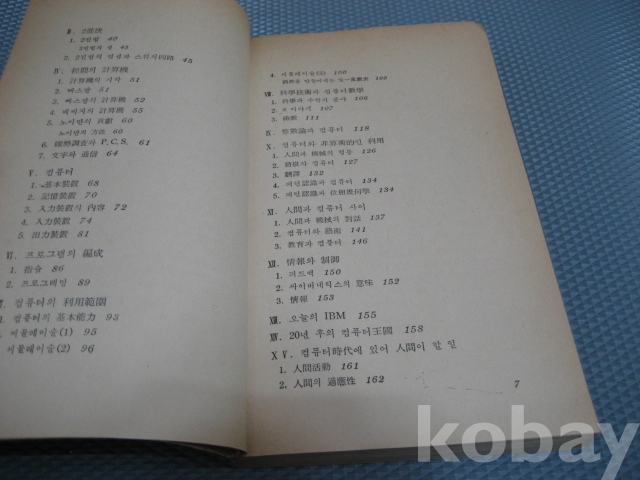 Ⅲ. 2進法
1. 2진법 40
2진법의 셈 43
2. 2진법의 연산과 스위치回路 45
Ⅳ. 初期의 計算機
1. 計算機의 시작 51
2. 빠스칼 51
3. 빠스칼의 計算機 52
4. 배비지의 計算機 55
5. 노이만의 貢獻 60
노이만의 方法 60
6. 國勢調査와 P.C.S. 61
7. 文字와 通信 64
Ⅴ. 컴퓨터
1. 基本裝置 68
2. 記憶裝置 70
3. 入力裝置의 內容 72
4. 入力裝置 74
5. 出力裝置 81
Ⅵ. 프로그램의 編成
1. 指令 86
2. 프로그래밍 89
Ⅶ. 컴퓨터의 利用範圍
1. 컴퓨터의 基本能力 93
2. 시뮬레이숀(1) 95
시뮬레이숀(2) 96
4. 시뮬레이숀(3) 100
Ⅷ. 科學技術과 컴퓨터數學
1. 科學과 수학의 분야 106
107
3. 函數 111
Ⅸ. 整數論과 컴퓨터 118
Ⅹ. 컴퓨터와 非算術的인 利用
1. 人間과 機械의 협동 126
2. 127
3. 翻譯 132
4. 패턴認識과 컴퓨터 134
5. 패턴認識과 位相幾何學 134
ⅩⅠ. 人間과 컴퓨터 사이
1. 人間과 機械의 對話 137
2. 컴퓨터와 藝術 141
3. 敎育과 컴퓨터 146
ⅩⅡ. 情報와 制御
1. 피드백 150
2. 싸이버네틱스의 意味 152
3. 情報 153
ⅩⅢ. 오늘의 IBM 155
ⅩⅣ. 20년 후의 컴퓨터王國 158
ⅩⅤ. 컴퓨터時代에 있어 人間이 할 일
1. 人間活動 161
2. 人間의 適應性 162
7
kobay